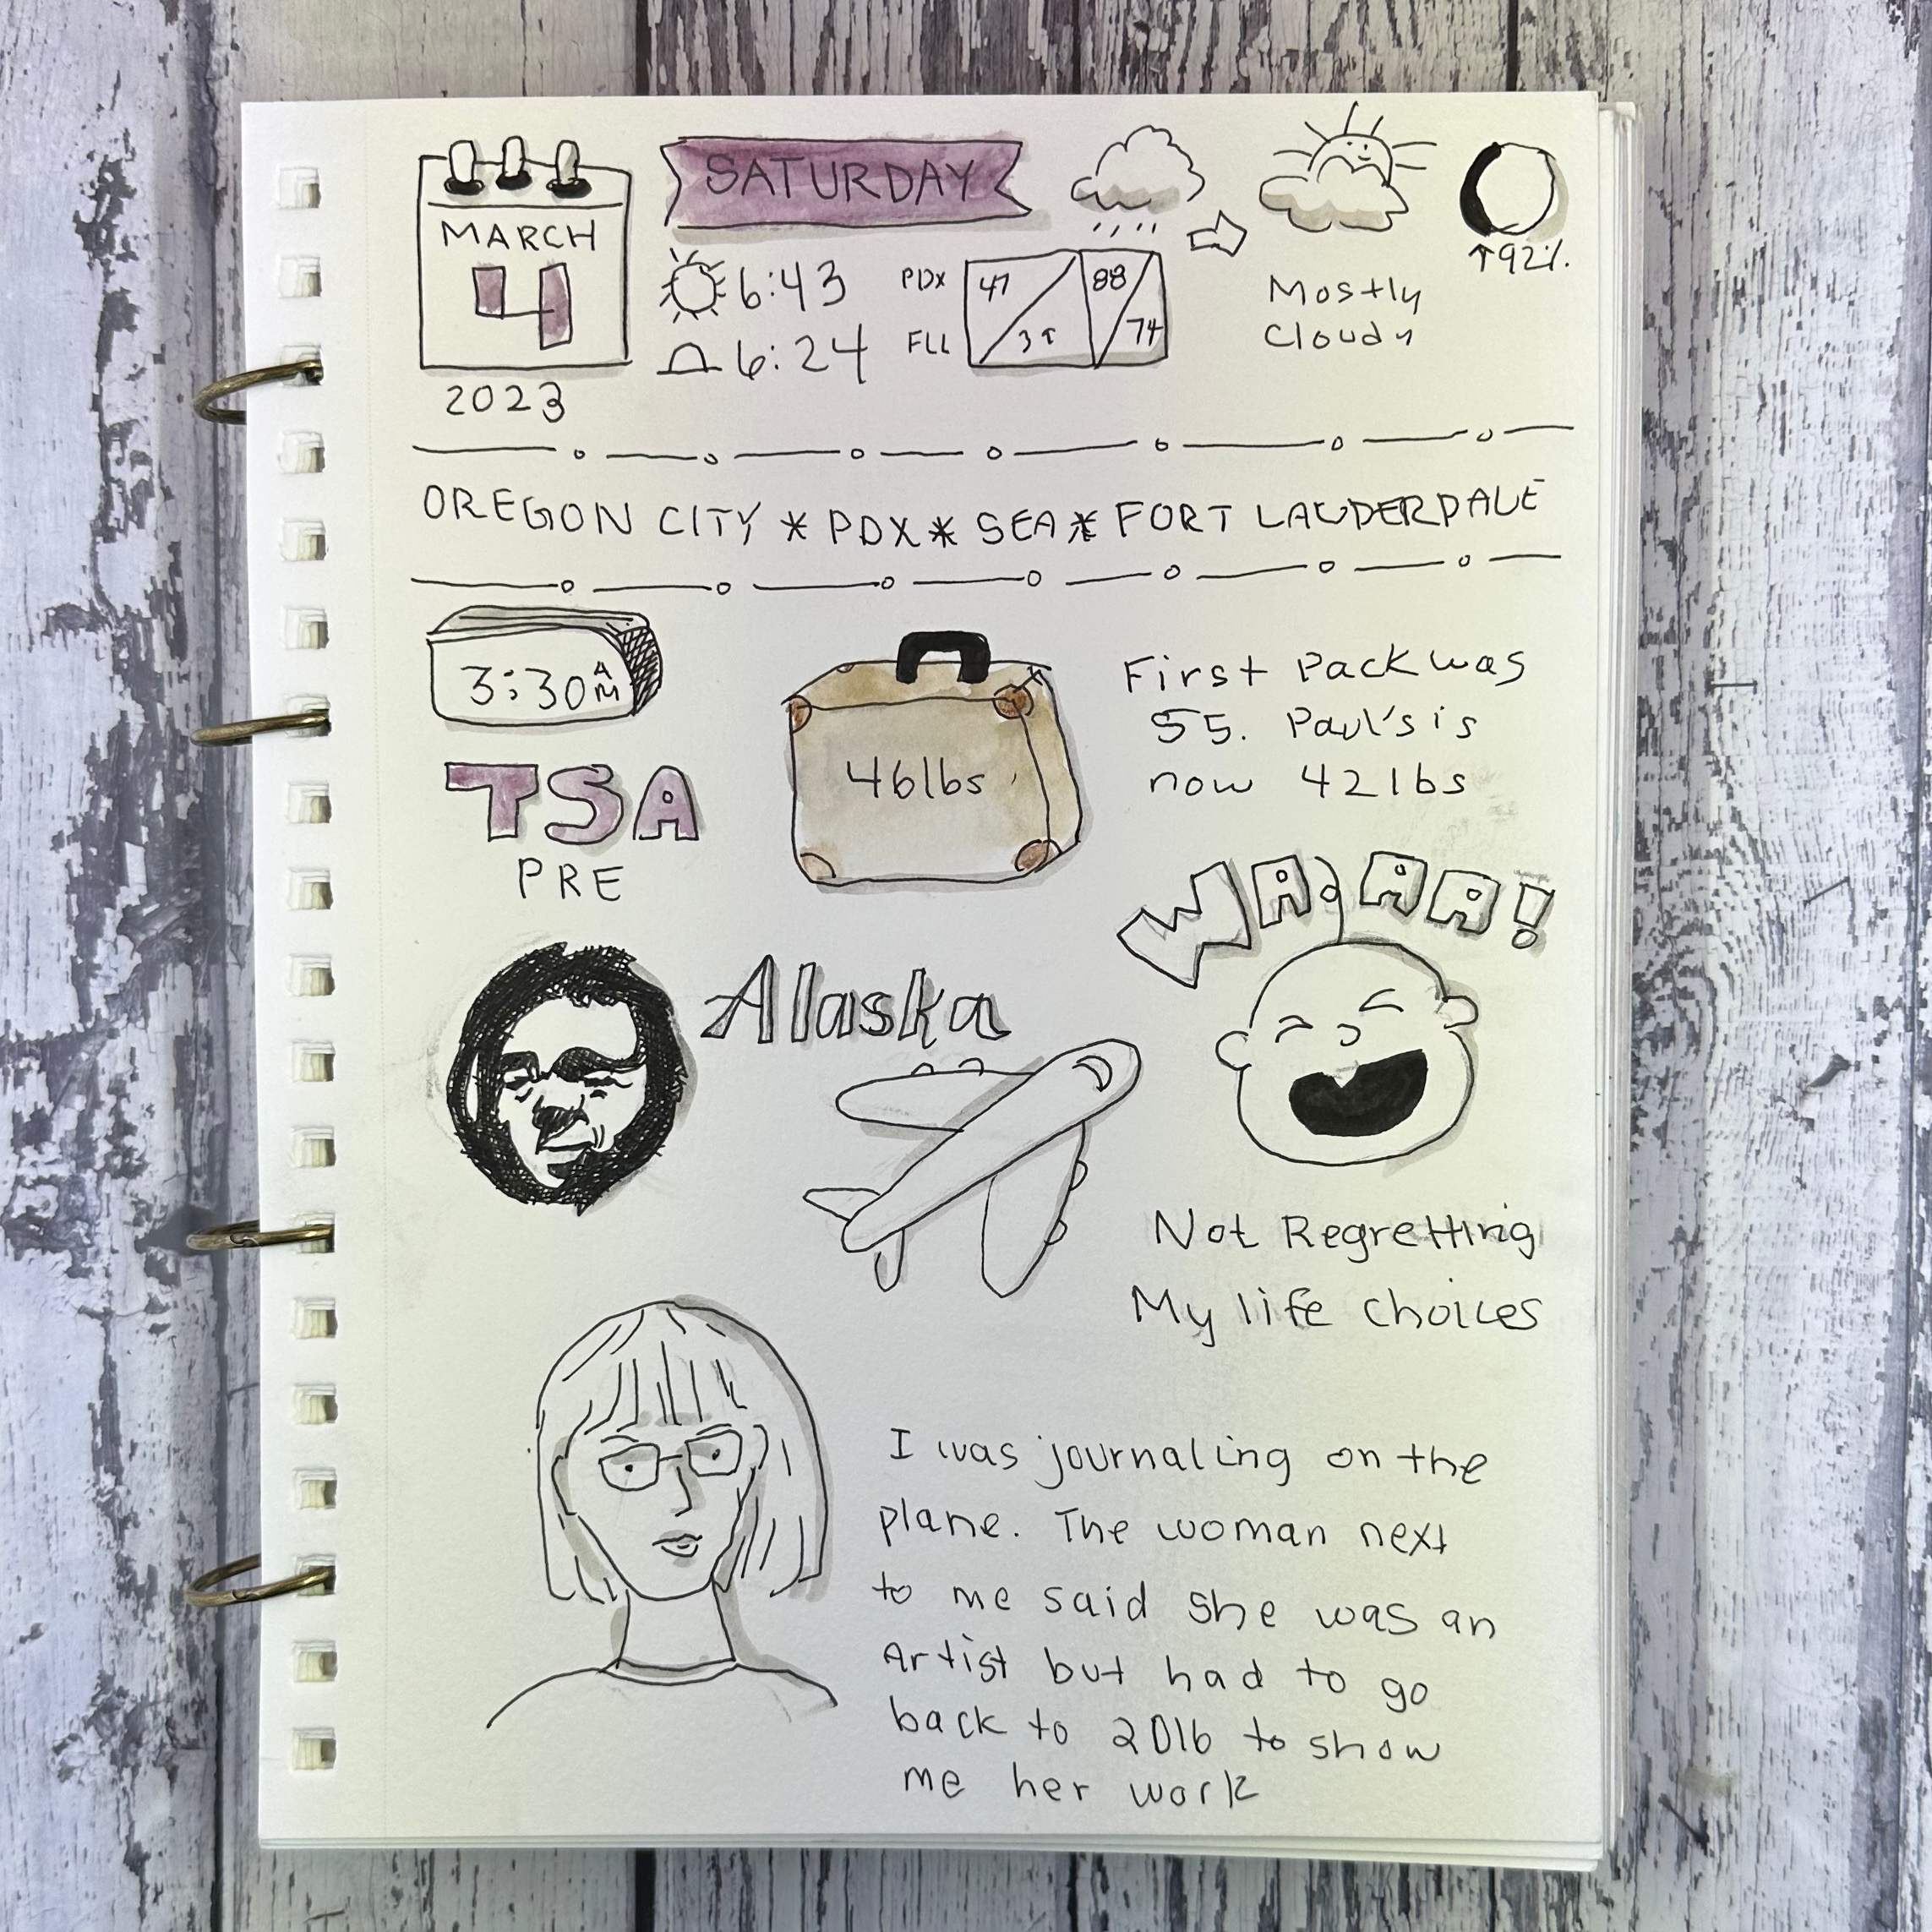 SATURDAY
MARCH
4
2023
6:43
6:24
PDX
FLL
47
88
74
↑92%.
Mostly
Cloudy
OREGON CITY * PDX * SEA * FORT LAUDERDALE
3:30 AM
TSA
PRE
46lbs
First Pack was
55. Paul's is
now 42lbs
WAAAA!
Alaska
Not Regretting
My life choices
I was journaling on the
plane. The woman next
to me said she was an
Artist but had to go
back to 2016 to show
me her work